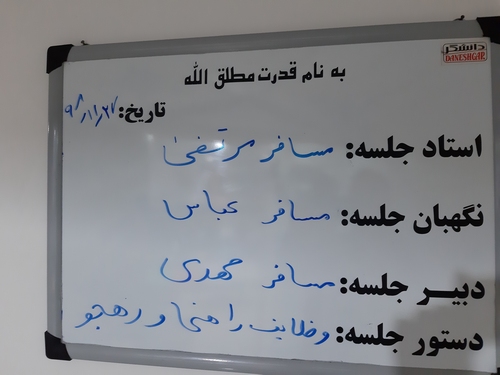 دانشگر
DANESHGAR
به نام قدرت مطلق الله
تاریخ: ۹۸/۱۱/۲۲
استاد جلسه: مسافر مرتضی
نگهبان جلسه: مسافر عباس
دبیر جلسه: مسافر مهدی
دستور جلسه: وظایف راهنما و رهجو